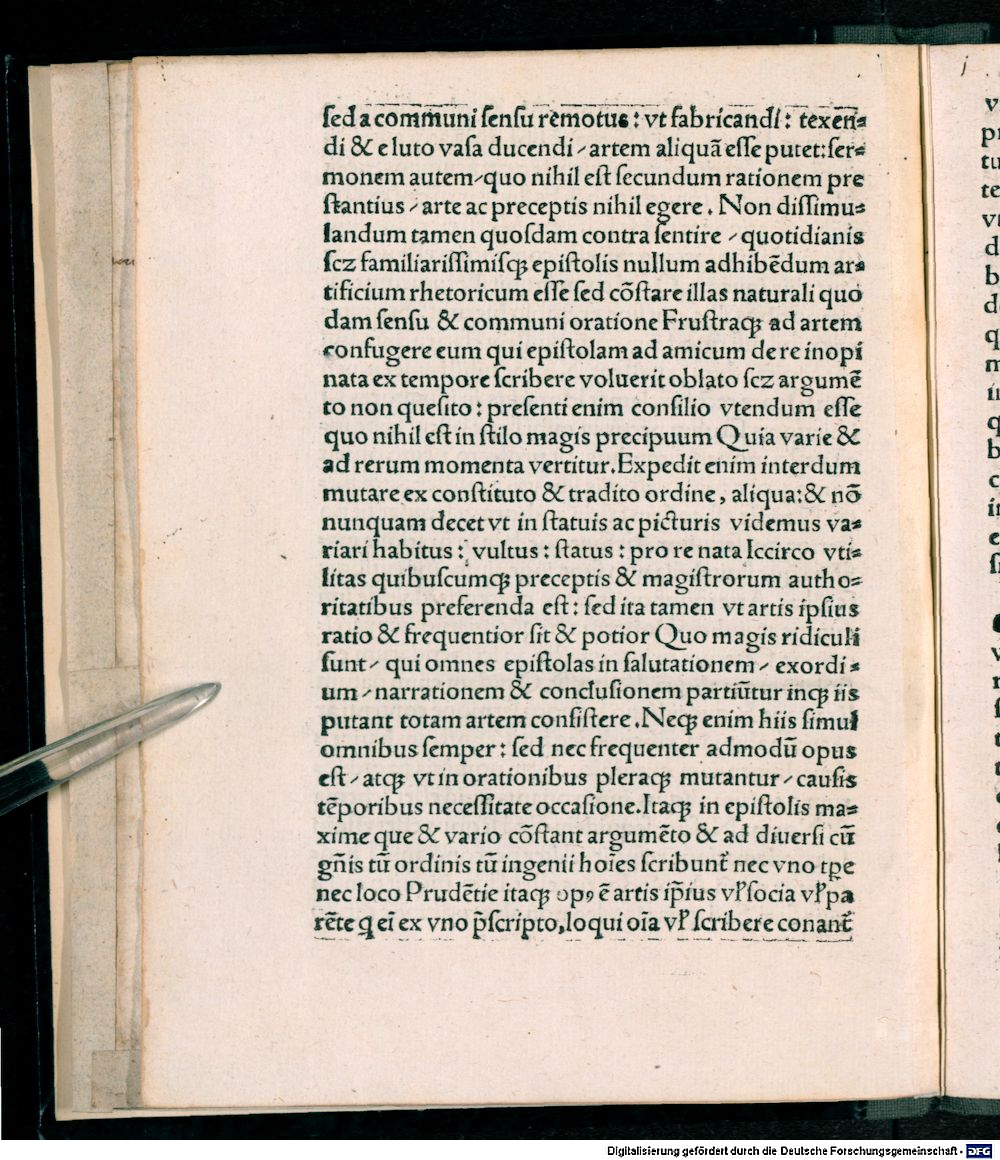 ſed a communi ſenſu remotus: vt fabricandi: texen⸗
di & e luto vaſa ducendi ⸝ artem aliquā eſſe putet: ſer⸗
monem autem ⸝ quo nihil eſt ſecundum rationem pre
ſtantius ⸝ arte ac preceptis nihil egere. Non diſſimu⸗
landum tamen quoſdam contra ſentire ⸝ quotidianis
ſcz familiariſſimiſqꝫ epiſtolis nullum adhibēdum ar⸗
tificium rhetoricum eſſe ſed cōſtare illas naturali quo
dam ſenſu & communi oratione Fruſtraqꝫ ad artem
confugere eum qui epiſtolam ad amicum de re inopi
nata ex tempore ſcribere voluerit oblato ſcz argumē
to non queſito: preſenti enim conſilio vtendum eſſe
quo nihil eſt in ſtilo magis precipuum Quia varie &
ad rerum momenta vertitur. Expedit enim interdum
mutare ex conſtituto & tradito ordine, aliqua: & nō
nunquam decet vt in ſtatuis ac picturis videmus va⸗
riari habitus: vultus: ſtatus: pro re nata Iccirco vti⸗
litas quibuſcumqꝫ preceptis & magiſtrorum autho⸗
ritatibus preferenda eſt: ſed ita tamen vt artis ipſius
ratio & frequentior ſit & potior Quo magis ridiculi
ſunt ⸝ qui omnes epiſtolas in ſalutationem ⸝ exordi⸗
um ⸝ narrationem & concluſionem partiūtur inqꝫ iis
putant totam artem conſiſtere. Neqꝫ enim hiis ſimul
omnibus ſemper: ſed nec frequenter admodū opus
eſt ⸝ atqꝫ vt in orationibus pleraqꝫ mutantur ⸝ cauſis
tēporibus neceſſitate occaſione. Itaqꝫ in epiſtolis ma⸗
xime que & vario cōſtant argumēto & ad diuerſi cū
gn̄is tū ordinis tū ingenii hoīes ſcribunt᷑ nec vno tꝑe
nec loco Prudētie itaqꝫ opꝰ ē artis ip̄ius vꝉ ſocia vꝉ pa
rēte q̨ eī ex vno p̄ſcripto, loqui oīa vꝉ ſcribere conant᷑
Digitalisierung gefördert durch die Deutsche Forschungsgemeinschaft - DFG